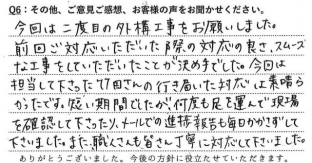 Q6：その他、ご意見ご感想、お客様の声をお聞かせください。
今回は二度目の外構工事をお願いしました。
前回ご対応いただいた際の対応の良さ、スムーズ
な工事をしていただいたことが決め手でした。今回は
担当して下さった竹田さんの行き届いた対応は素晴ら
かったです。短い期間でしたが、何度も足を運んで現場
を確認して下さったり、メールでの進捗報告も毎日かかさずして
下さいました。また、職人さんも皆さん丁寧に対応して下さいました。
ありがとうございました。今後の方針に役立たせていただきます。